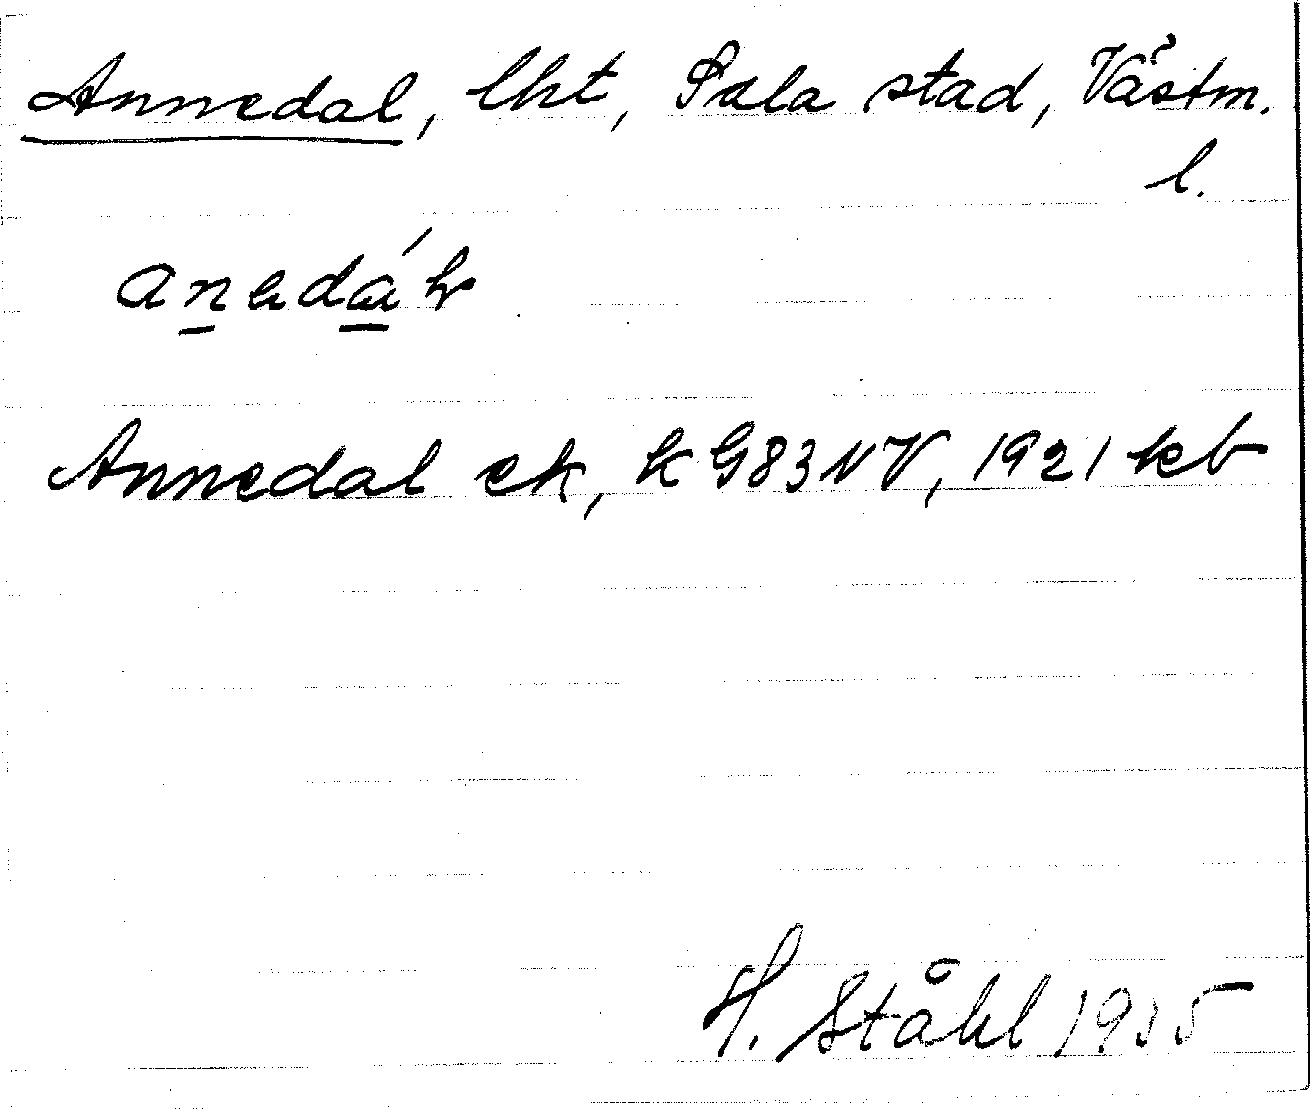 Annedal, lht, Sala stad, Västm.
l.
Annedal ek, k G83NV, 1921 kb
H. Ståhl 1935